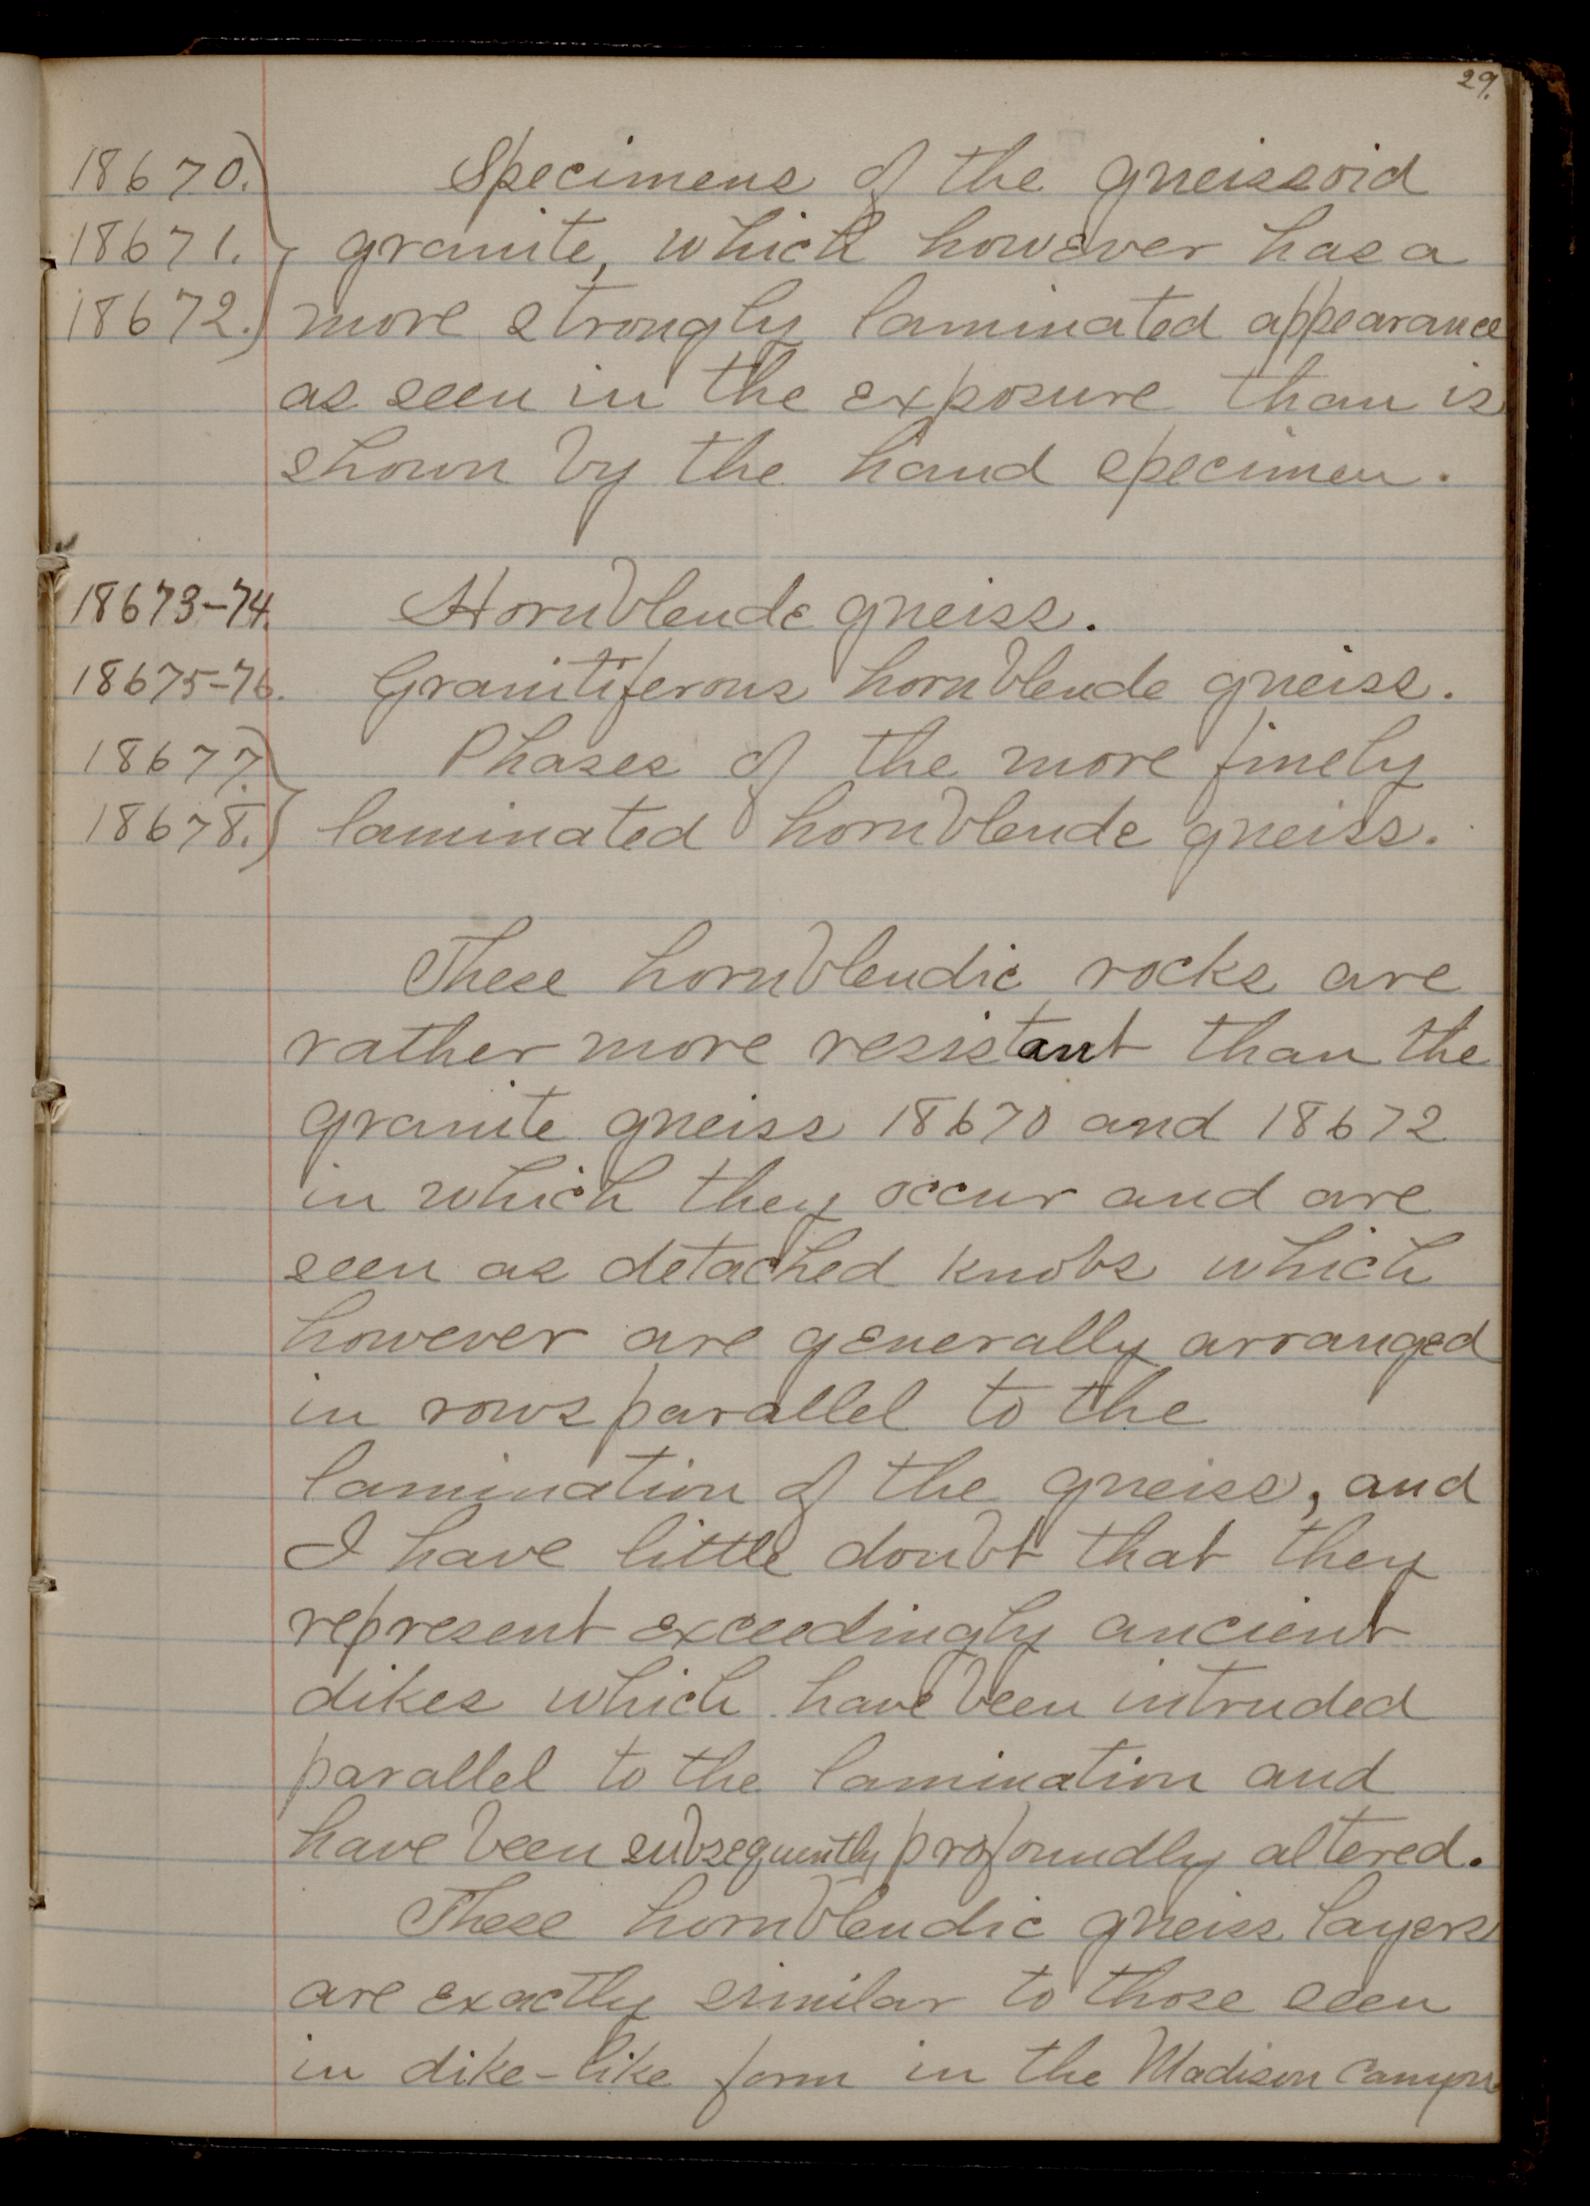 29.
18670. Specimens of the gneissoid
18671. granite, which however has a
18672. more strongly laminated appearance
as seen in the exposure than is
shown by the hand specimen.
18673-74. Hornblende gneiss.
18675-76. Granitiferous hornblende gneiss.
18677. Phases of the more finely
18678. laminated hornblende gneiss.
These hornblendic rocks are
rather more resistant than the
granite gneiss 18670 and 18672
in which they occur and are
seen as detached knobs which
however are generally arranged
in rows parallel to the
lamination of the gneiss, and
I have little doubt that they
represent exceedingly ancient
dikes which have been intruded
parallel to the lamination and
have been subsequently profoundly altered.
These hornblendic gneiss layers
are exactly similar to those seen
in dike-like form in the Madison Canyon